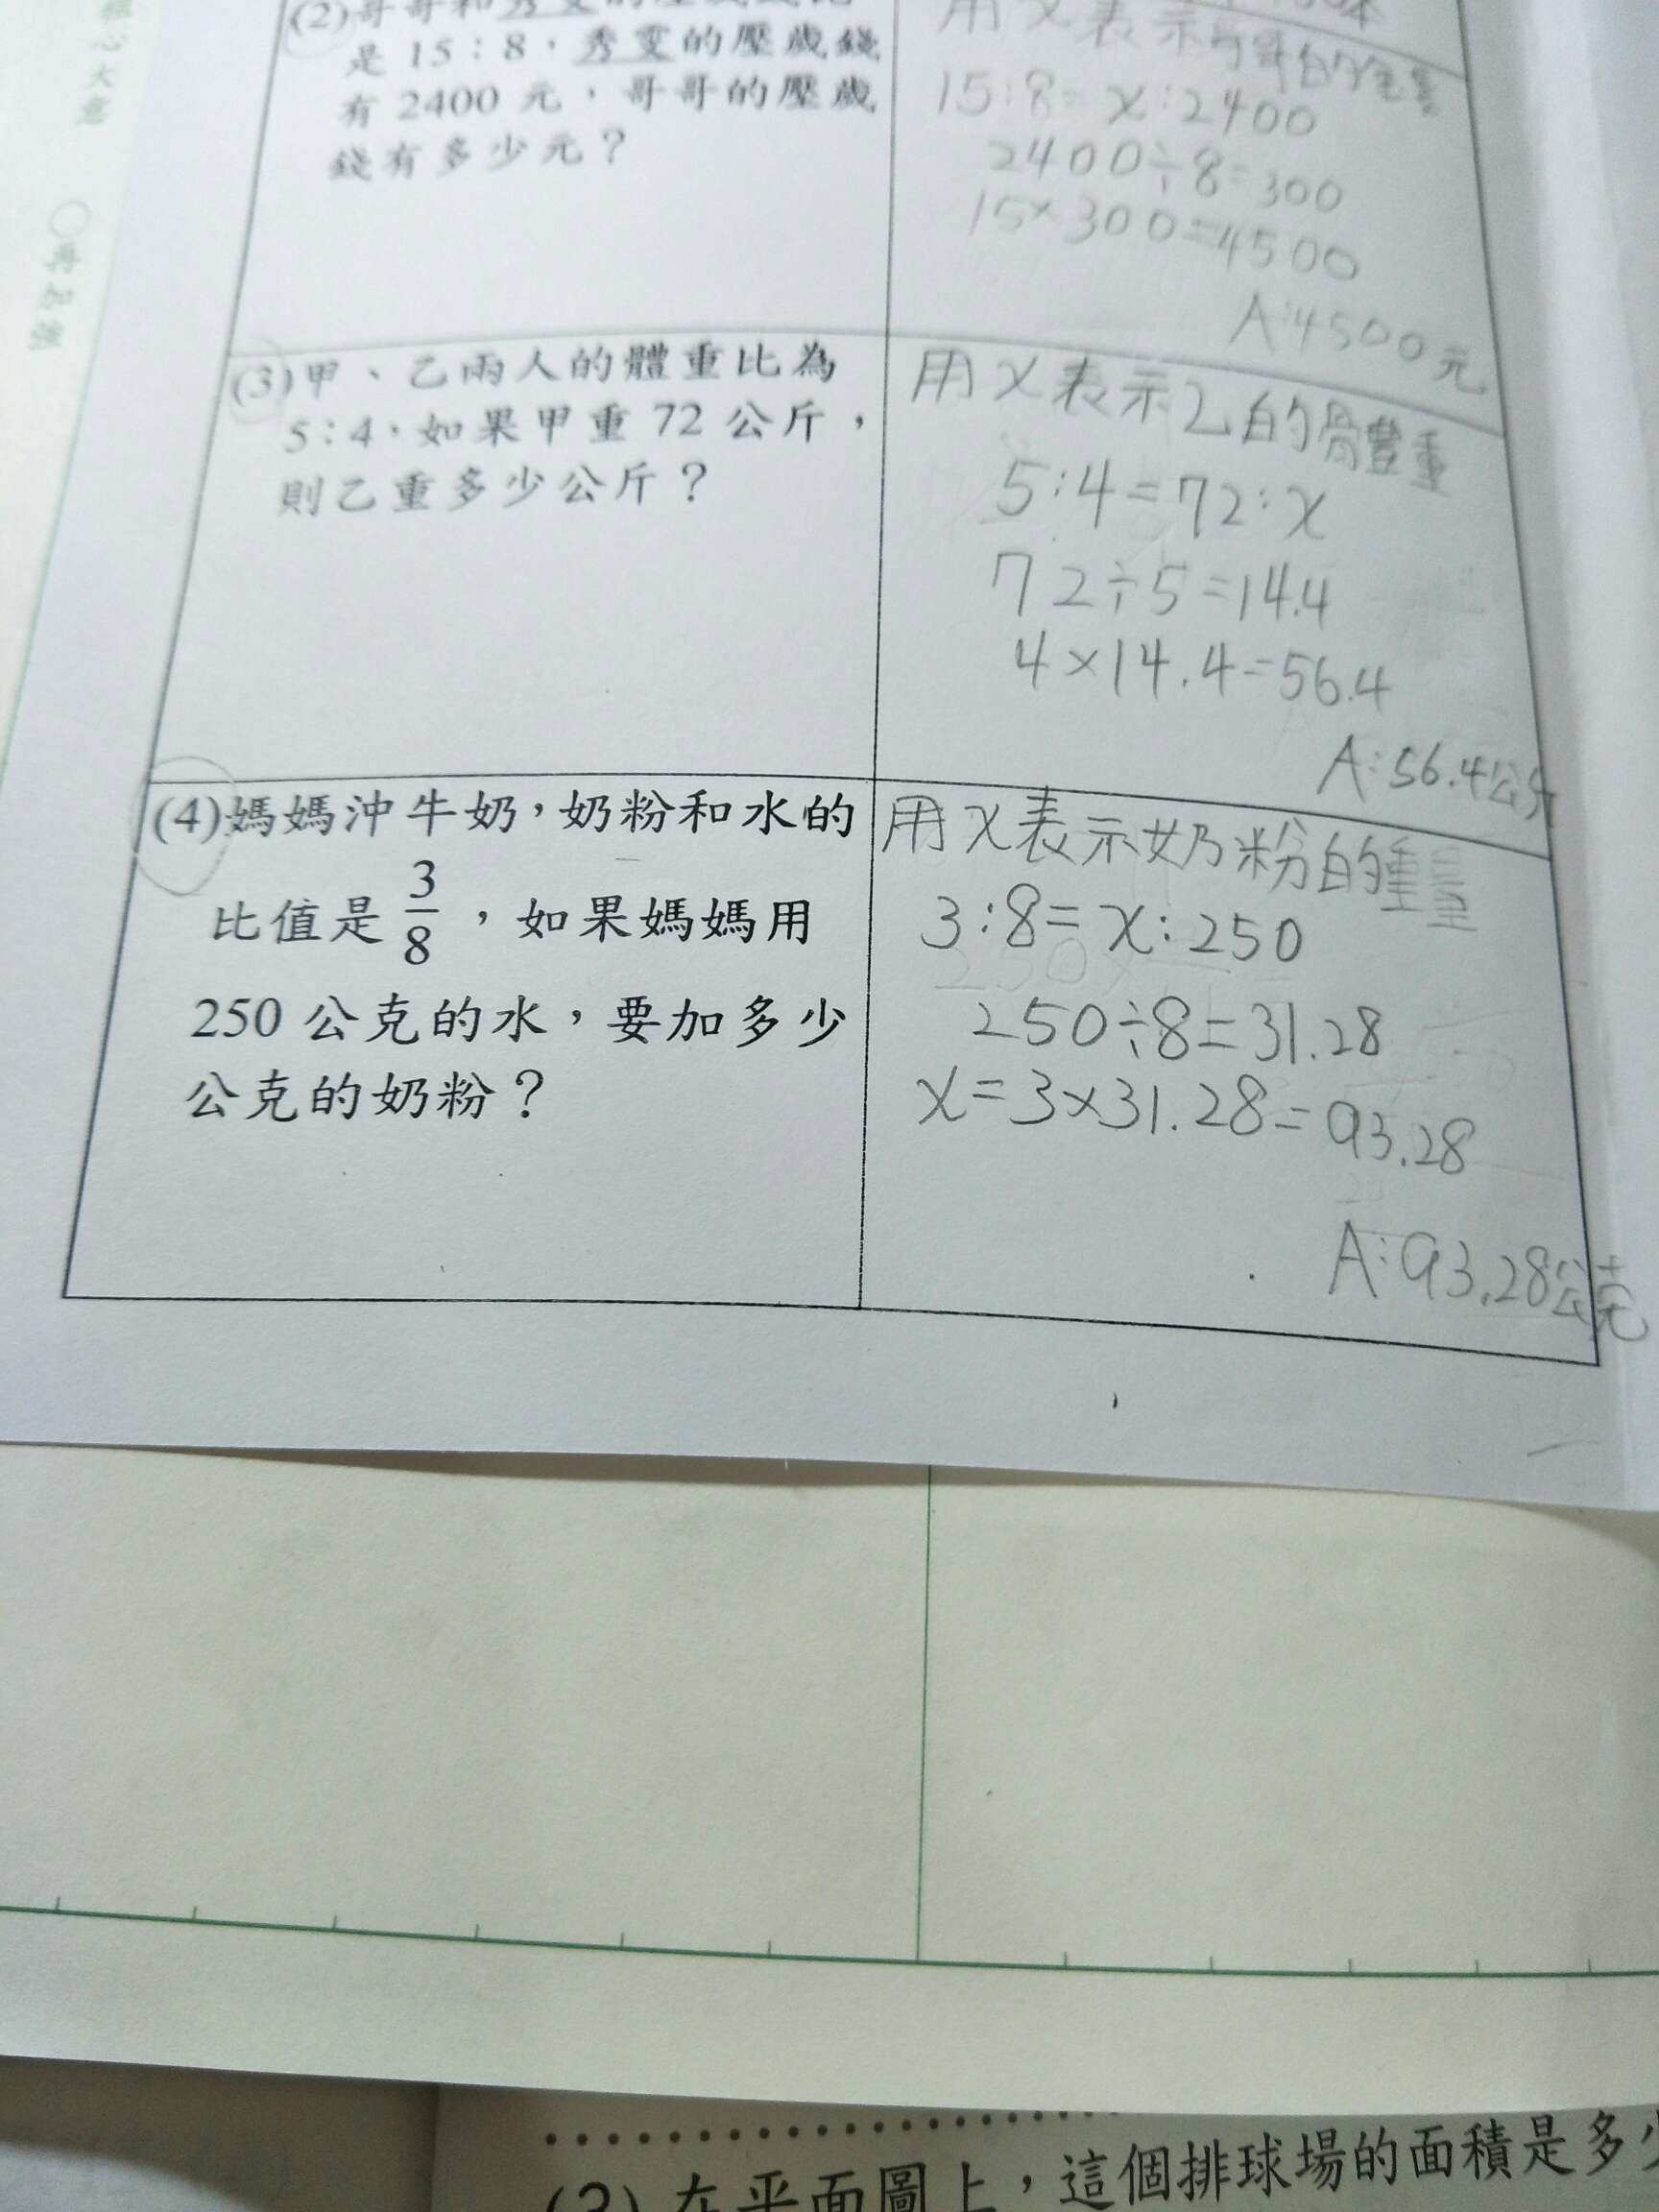 是 15：8，秀雯的壓歲錢
有 2400 元，哥哥的壓歲
錢有多少元？
15:8=x:2400
2400÷8=300
15×300=4500
A:4500元
(3)甲、乙兩人的體重比為
5：4，如果甲重 72 公斤，
則乙重多少公斤？
用x表示乙的體重
5:4=72:x
72÷5=14.4
4×14.4=56.4
A:56.4公斤
(4)媽媽沖牛奶，奶粉和水的
比值是 3/8，如果媽媽用
250 公克的水，要加多少
公克的奶粉？
用x表示奶粉的重量
3:8=x:250
250÷8=31.28
x=3×31.28=93.28
A:93.28公克
(3) 在平面圖上，這個排球場的面積是多少